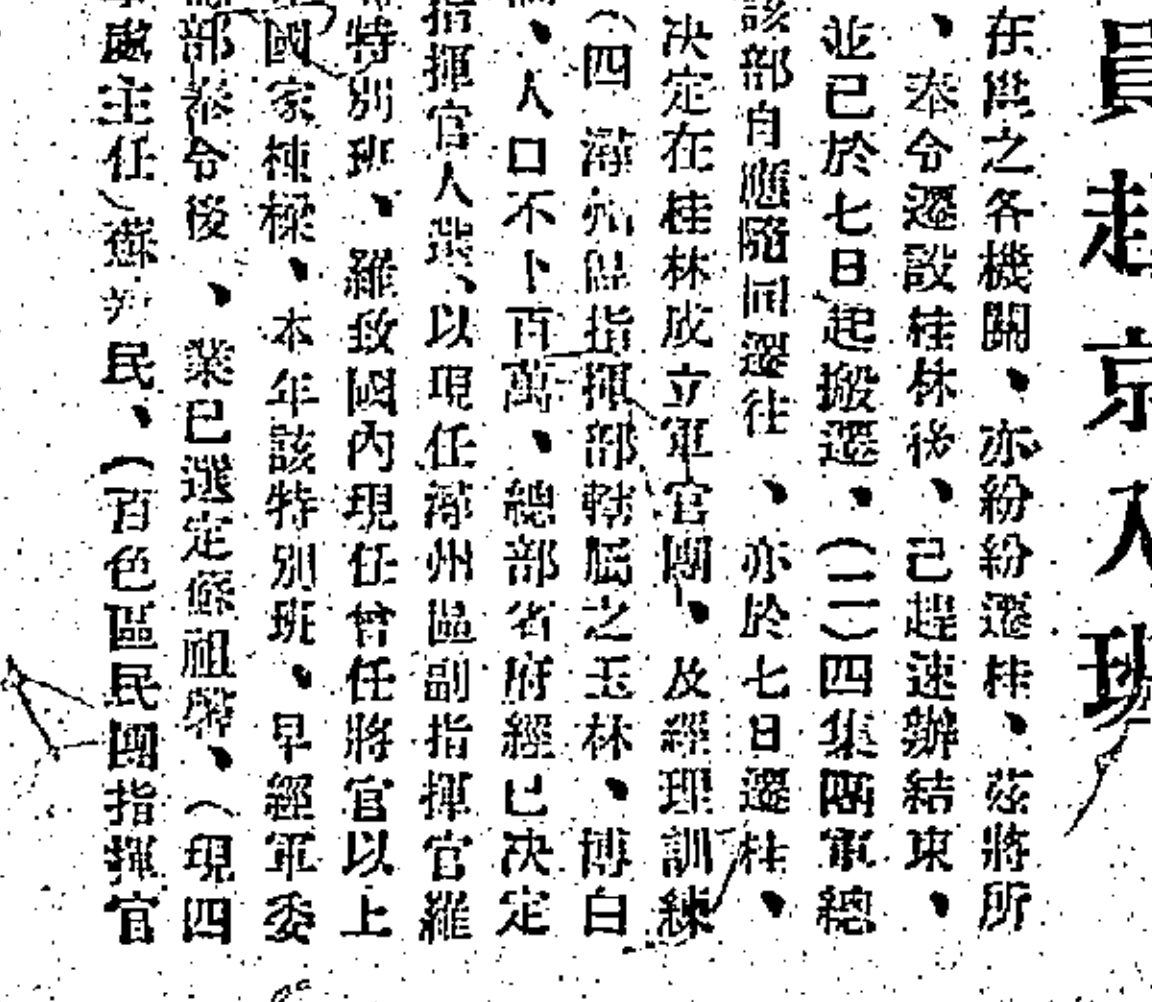 員赴京入班
在邕之各機關、亦紛紛遷桂、茲將所
、奉令遷設桂林後、已趕速辦結束、
並已於七日起搬遷、(二)四集團軍總
該部自應隨同遷往、亦於七日遷桂、
決定在桂林成立軍官團、及經理訓練
(四 潯州區指揮部轄屬之玉林、博白
、人口不卜百萬、總部省府經已決定
指揮官人選、以現任潯州區副指揮官羅
特別班、羅致國內現任曾任將官以上
國家棟樑、本年該特別班、早經軍委
部奉令後、業已選定蘇祖馨、(現四
處主任)蘇 民、(百色區民團指揮官